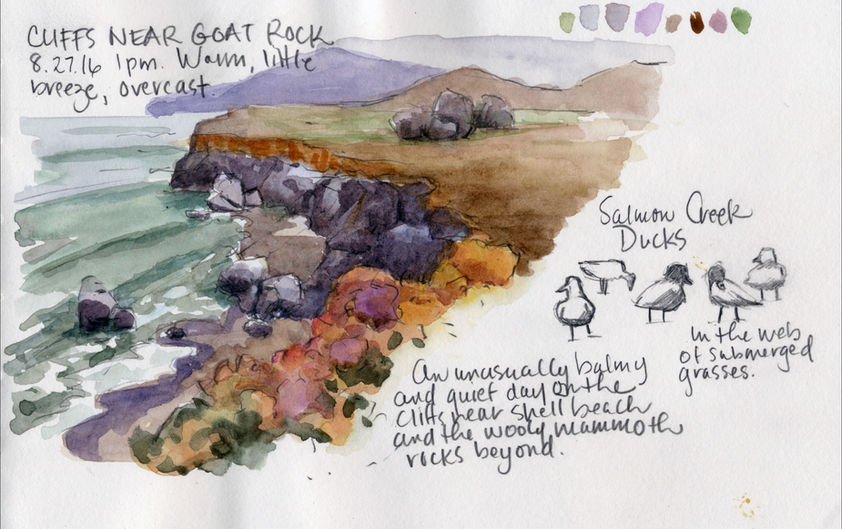 CLIFFS NEAR GOAT ROCK
8.27.16 1pm. Warm, little
breeze, overcast.
Salmon Creek
Ducks
in the web
of submerged
grasses.
An unusually balmy
and quiet day on the
cliffs near shell beach
and the wooly mammoth
rocks beyond.